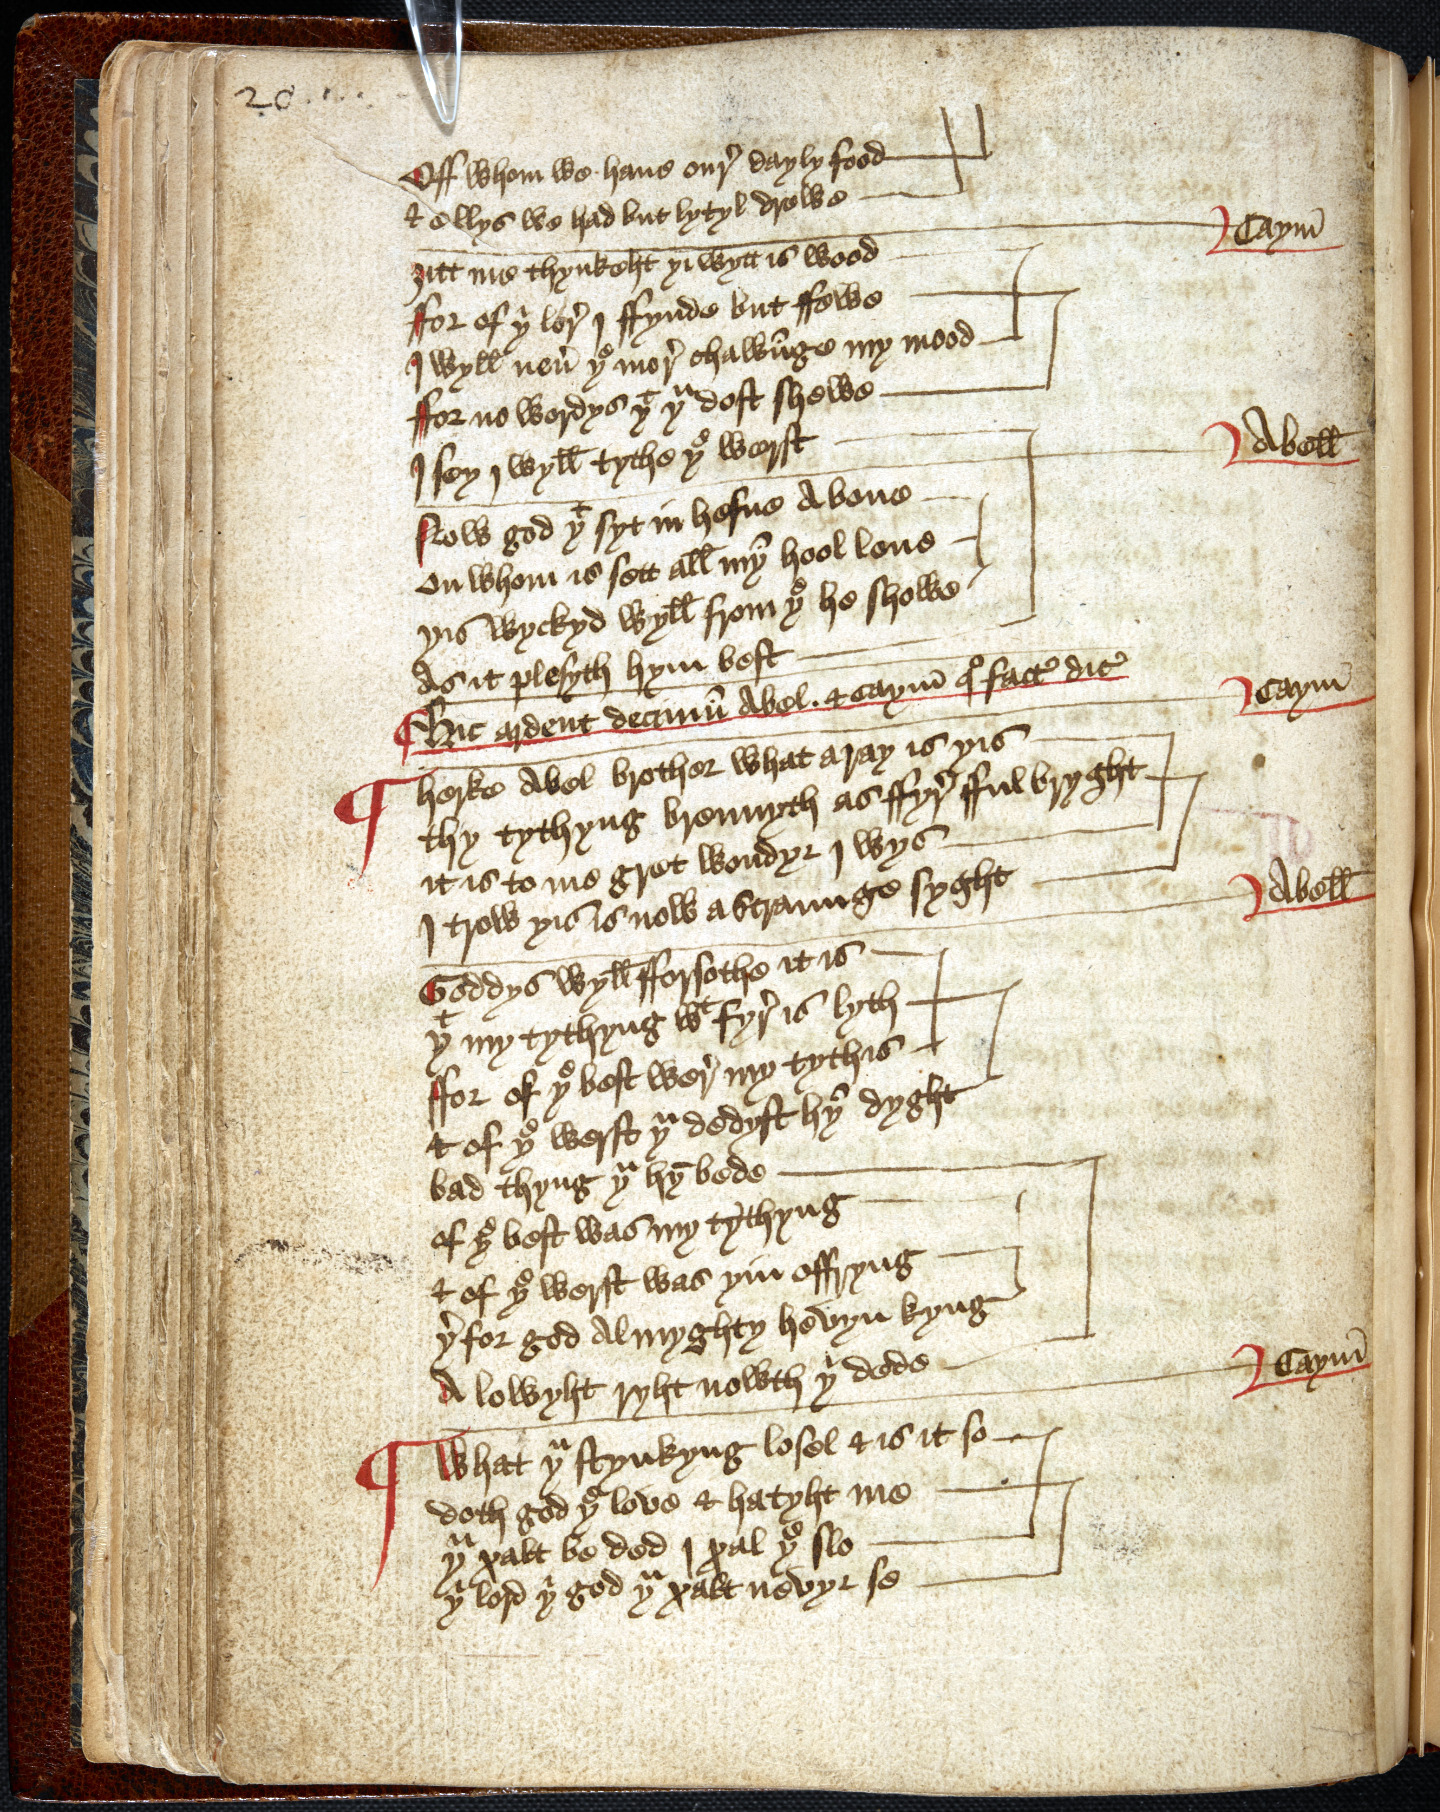 20
Off whom we haue our̛ dayly food
& ellys we had but lytyl drowe
Caym̄
ȝitt me thynkeht þi wytt is wood
ffor of þi lor̛ I ffynde but ffewe
I wyll neư þe mor̛ chawn̄ge my mood
ffor no wordys þt þu dost shewe
I sey I wyll tythe þe werst
Abell
Now god þt syt in hefne Aboue
on whom is sett all my̛ hool loue
þis wyckyd wyll from þe he showe
As it plesyth hym best
Hic ardent decimū Abel. & caym̄ qo facto dic̛
Caym̄
herke Abel brother what aray is þis
thy tythyng brennyth as ffyr̛ fful bryght
it is to me gret wondyr I wys
I trow þis is now a straunge syght
Abell
Goddys wyll fforsothe it is
þt my tythyng wt fyr̛ is lyth
ffor of þe best wer̛ my tythis
& of þe werst þu dedyst hȳ dyght
bad thyng þu hȳ bede
of þe best was my tythyng
& of þe werst was þin offryng
þer̛for god Almyghty hevyn kyng
Alowyht ryht nowth þi dede
Caym̄
What þu stynkyng losel & is it so
doth god þe love & hatyht me
þu xalt be ded I xal þe slo
þi lord þi god þu xalt nevyr se